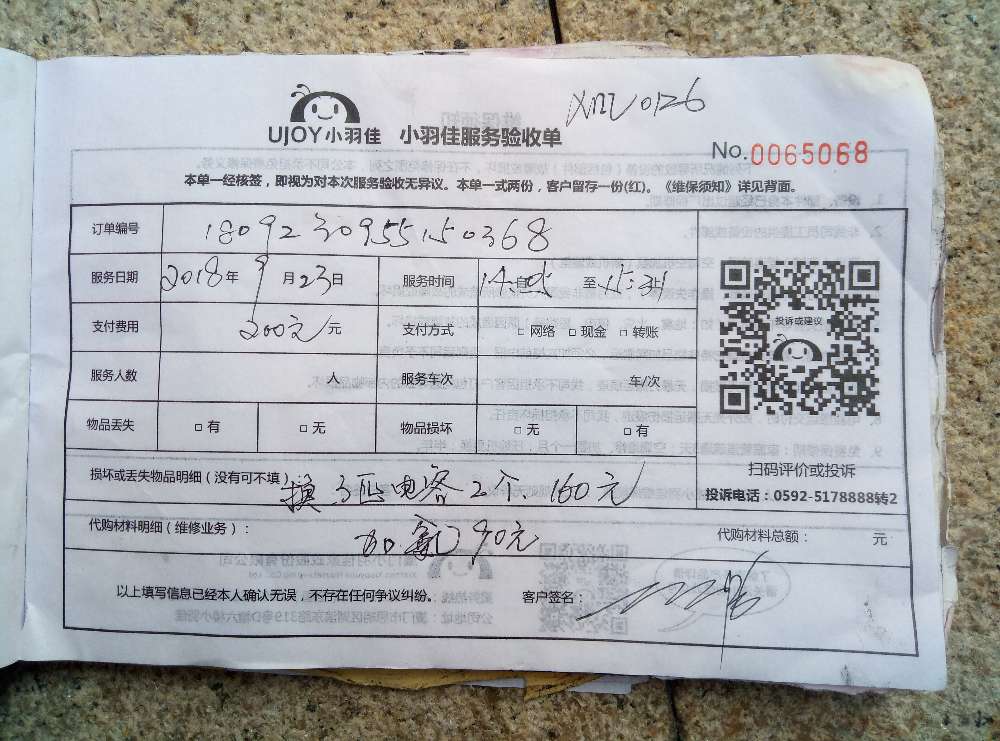 XMU0126
UJOY小羽佳 小羽佳服务验收单
No.0065068
本单一经核签，即视为对本次服务验收无异议。本单一式两份，客户留存一份(红)。《维保须知》详见背面。
订单编号 1809230955150368
服务日期 2018年9月23日 服务时间 自 至15:34
支付费用 200元 元 支付方式 □ 网络 □ 现金 □ 转账
投诉或建议
服务人数 人 服务车次 车/次
物品丢失 □ 有 □ 无 物品损坏 □ 无 □ 有
扫码评价或投诉
损坏或丢失物品明细（没有可不填） 换3匹电容2个 160元
投诉电话：0592-5178888转2
代购材料明细（维修业务）： 加氟 90元 代购材料总额： 元
以上填写信息已经本人确认无误，不存在任何争议纠纷。 客户签名：